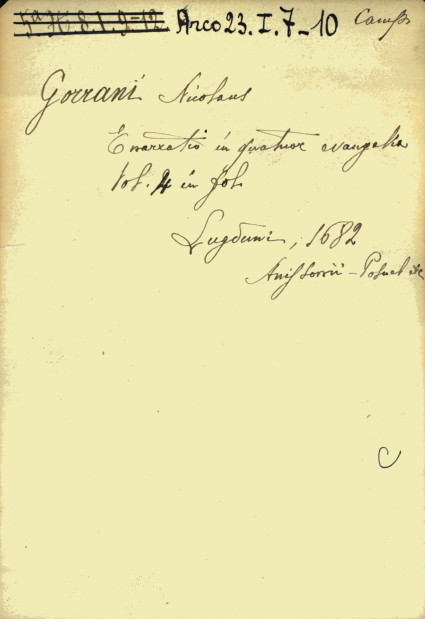 5ª H 8. I. 9-12 Arco 23. I. 7-10 Camps
Gorrani Nicolaus
Enarratio in quatuor evangelia
Vol. 4 in fol.
Lugduni, 1682
Anissonii - Posuel etc
C